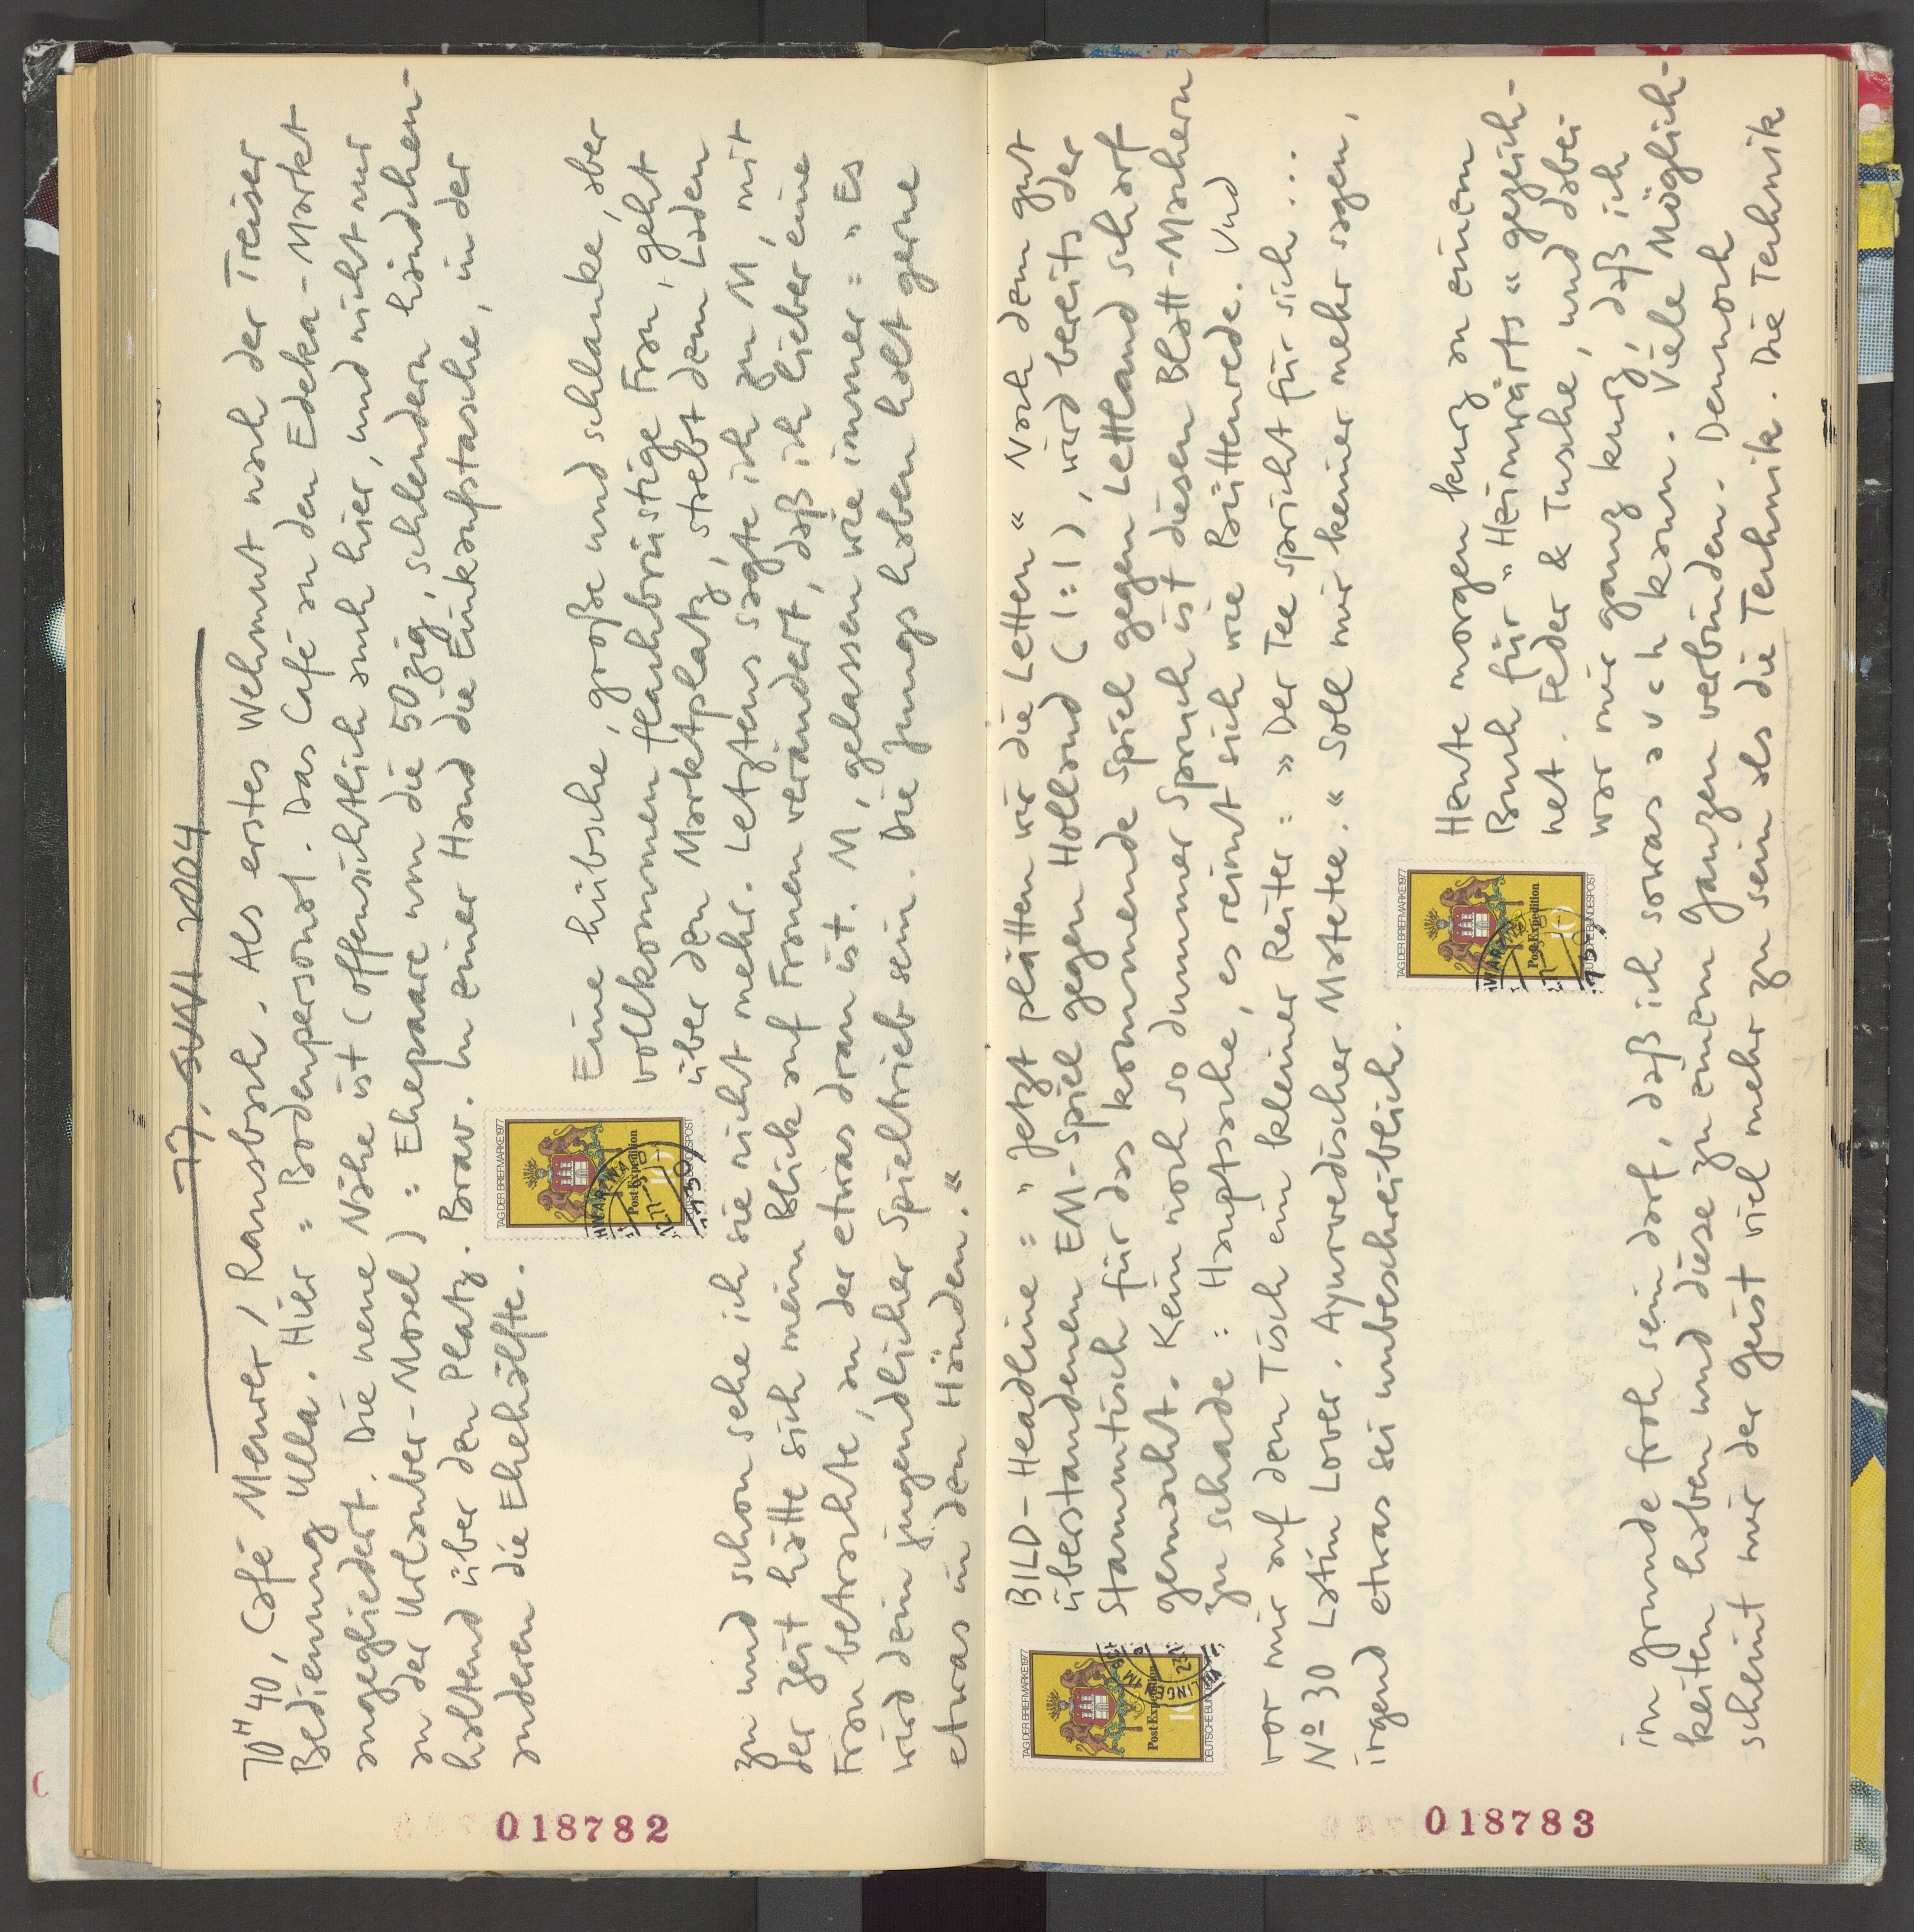 17. JUNI 2004
10H40, Café Meurer / Ransbach. Als erstes Wehmut nach der Treiser
Bedienung Ulla. Hier = Bodenpersonal. Das Café an den Edeka-Markt
angegliedert. Die neue Nähe ist (offensichtlich auch hier, und nicht nur
an der Urlauber-Mosel) = Ehepaare um die 50zig, schlendern händchen-
haltend über den Platz. Brav. In einer Hand die Einkaufstasche, in der
anderen die Ehehälfte.
Eine hübsche, große und schlanke, aber
vollkommen flachbrüstige Frau, geht
über den Marktplatz, strebt dem Laden
zu und schon sehe ich sie nicht mehr. Letztens sagte ich zu M, mit
der Zeit hätte sich mein Blick auf Frauen verändert, daß ich lieber eine
Frau betrachte, an der etwas dran ist. M, gelassen wie immer = » Es
wird dein jugendlicher Spieltrieb sein. Die Jungs haben halt gerne
etwas in den Händen. «
018782
BILD-Headline = » Jetzt plätten wir die Letten « Nach dem gut
überstandenen EM-Spiel gegen Holland (1:1), wird bereits der
Stammtisch für das kommende Spiel gegen Lettland scharf
gemacht. Kein noch so dummer Spruch ist diesen Blatt-Machern
zu schade = Hauptsache, es reimt sich wie Büttenrede. Und
vor mir auf dem Tisch ein kleiner Reiter = » Der Tee spricht für sich...
No 30 Latin Lover. Ayurvedischer Matetee. « Soll mir keiner mehr sagen,
irgend etwas sei unbeschreiblich.
Heute morgen kurz an einem
Buch für » Heimwärts « gezeich-
net. Feder & Tusche, und dabei
war mir ganz kurz, daß ich
im Grunde froh sein darf, daß ich sowas auch kann. Viele Möglich-
keiten haben und diese zu einem Ganzen verbinden. Dennoch
scheint mir der Geist viel mehr zu sein als die Technik. Die Technik
018783
TAG DER BRIEFMARKE 1977
Post-Expedition
10
DEUTSCHE BUNDESPOST
TAG DER BRIEFMARKE 1977
Post-Expedition
10
DEUTSCHE BUNDESPOST
TAG DER BRIEFMARKE 1977
Post-Expedition
10
DEUTSCHE BUNDESPOST